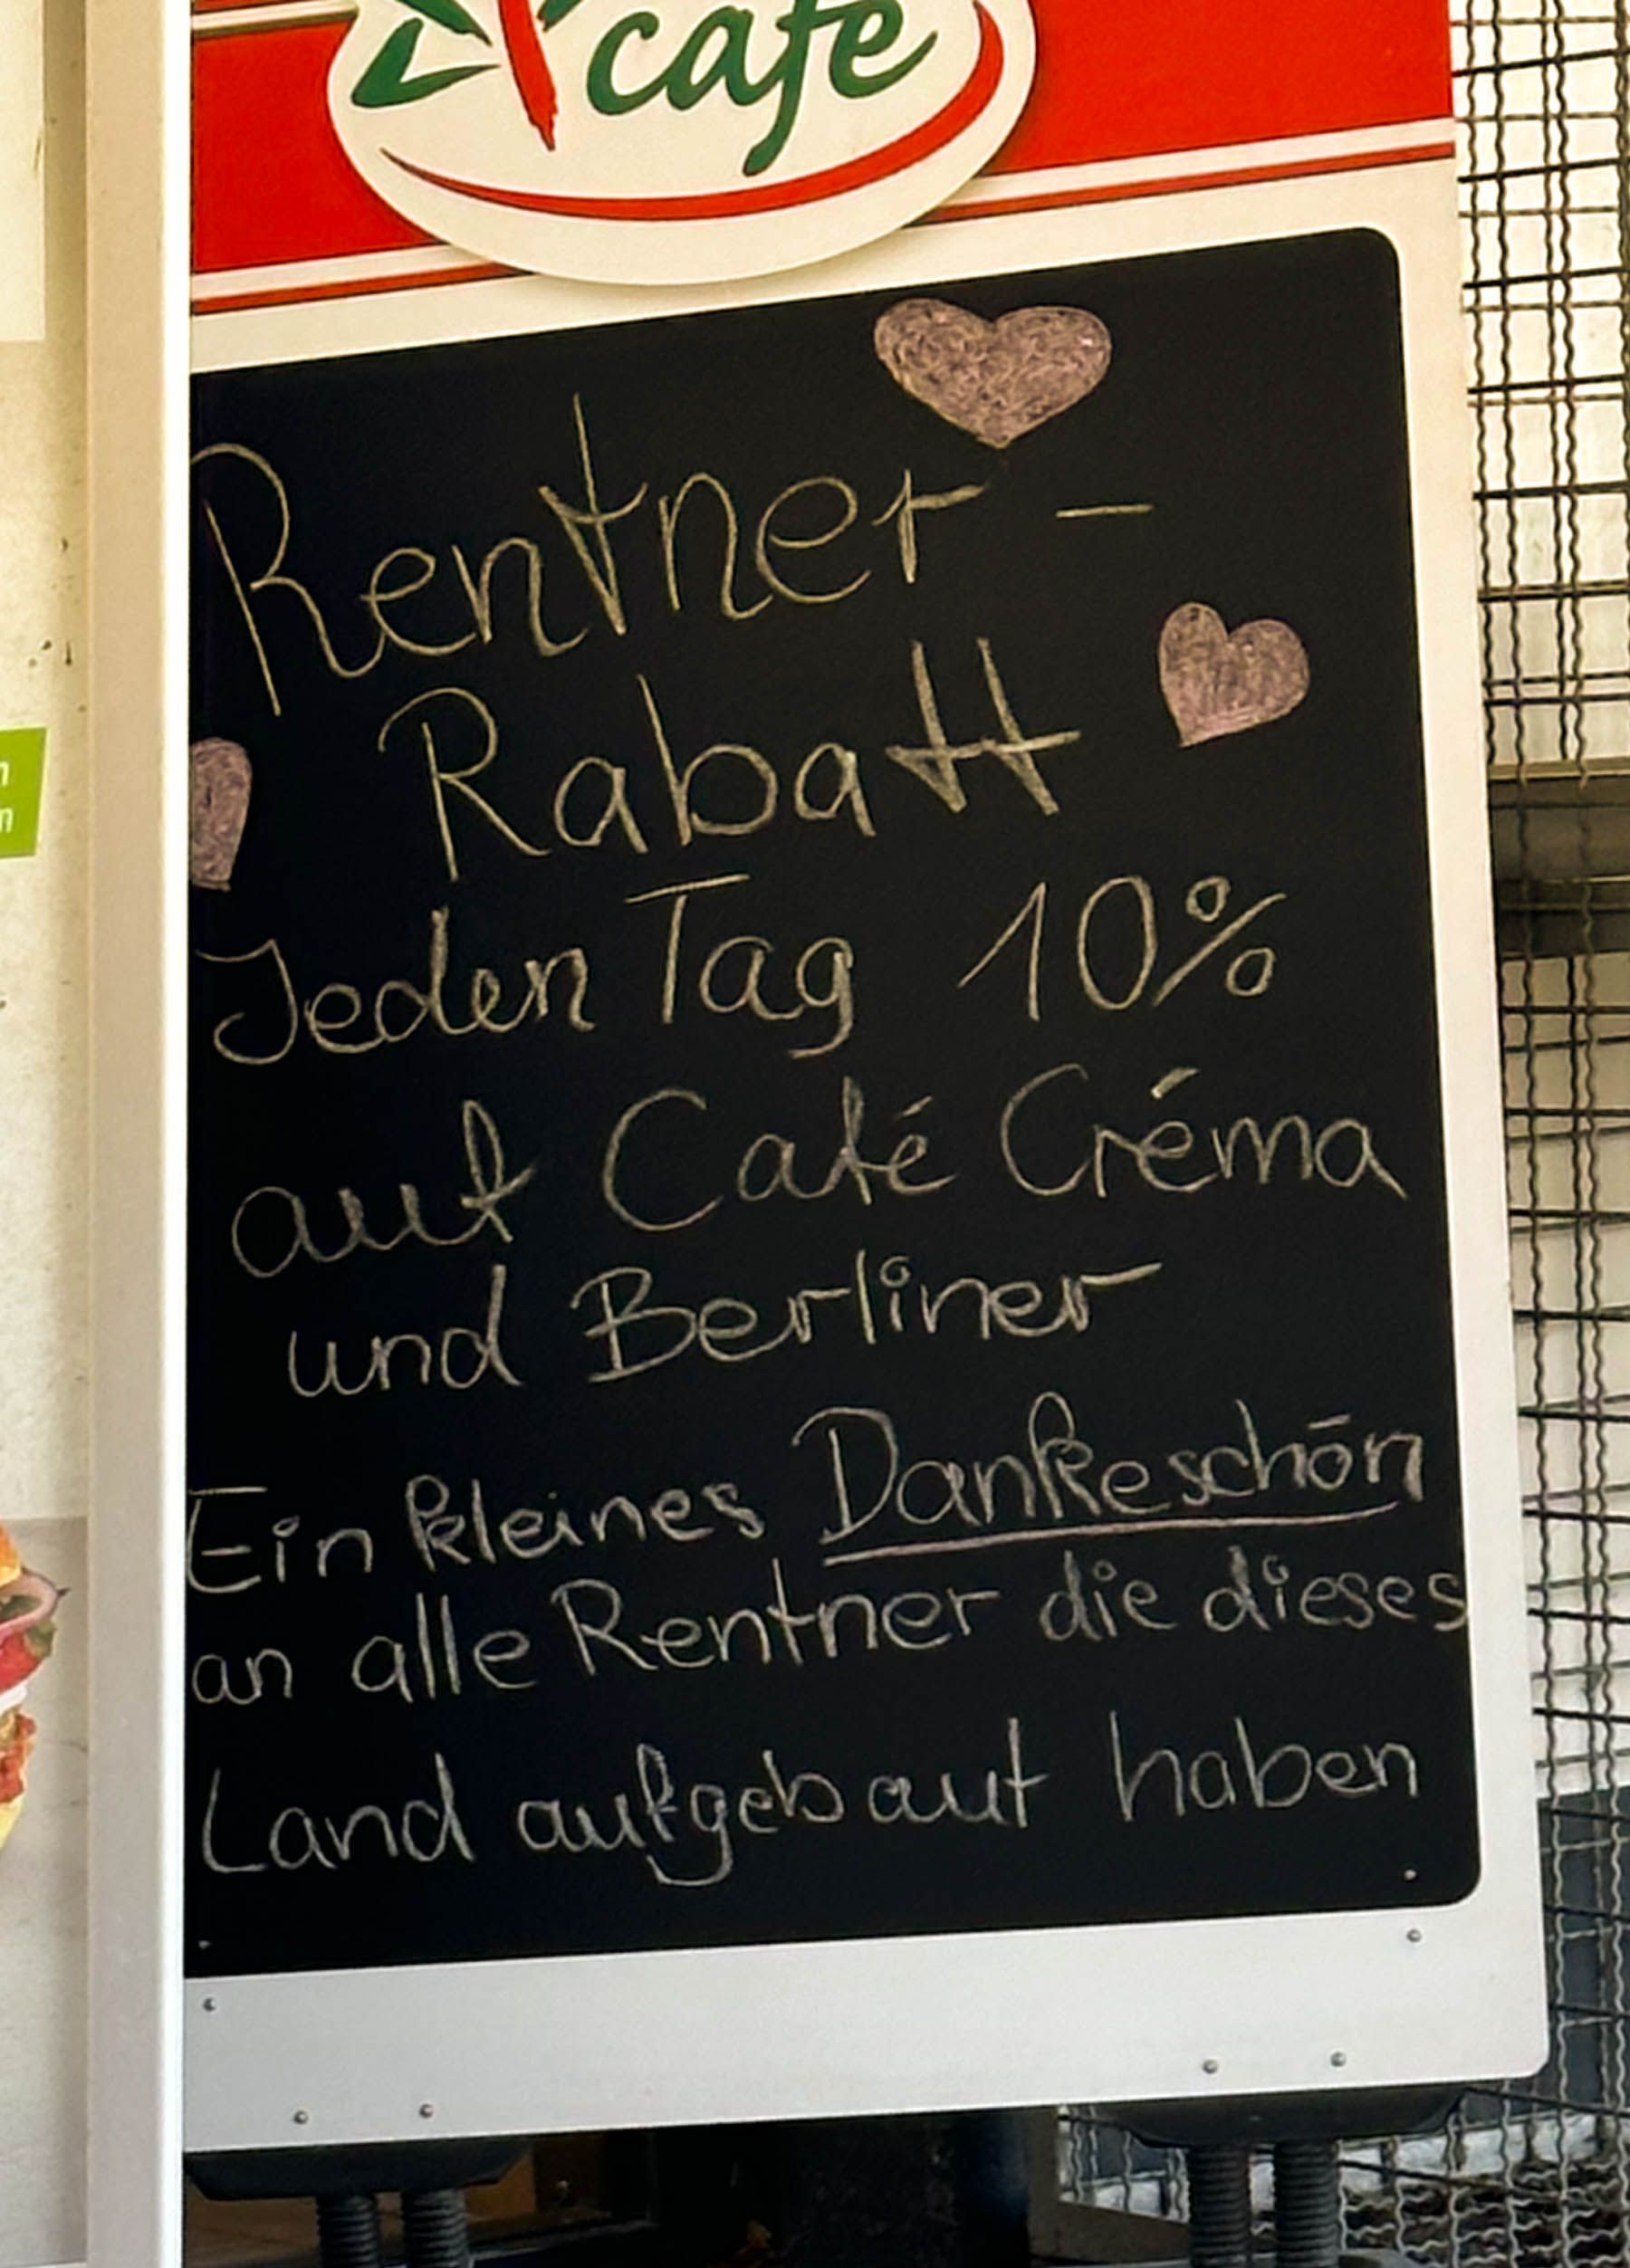 café
Rentner-
Rabatt
Jeden Tag 10%
auf Café Créma
und Berliner
Ein kleines Dankeschön
an alle Rentner die dieses
Land aufgebaut haben